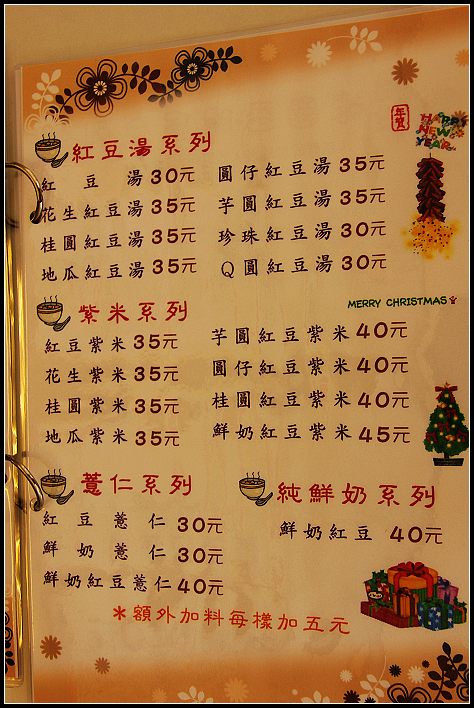 年賀
HAPPY
NEW
YEAR
紅豆湯系列
紅豆湯 30元
花生紅豆湯 35元
桂圓紅豆湯 35元
地瓜紅豆湯 35元
圓仔紅豆湯 35元
芋圓紅豆湯 35元
珍珠紅豆湯 30元
Q圓紅豆湯 30元
MERRY CHRISTMAS
紫米系列
紅豆紫米 35元
花生紫米 35元
桂圓紫米 35元
地瓜紫米 35元
芋圓紅豆紫米 40元
圓仔紅豆紫米 40元
桂圓紅豆紫米 40元
鮮奶紅豆紫米 45元
薏仁系列
紅豆薏仁 30元
鮮奶薏仁 30元
鮮奶紅豆薏仁 40元
純鮮奶系列
鮮奶紅豆 40元
*額外加料每樣加五元